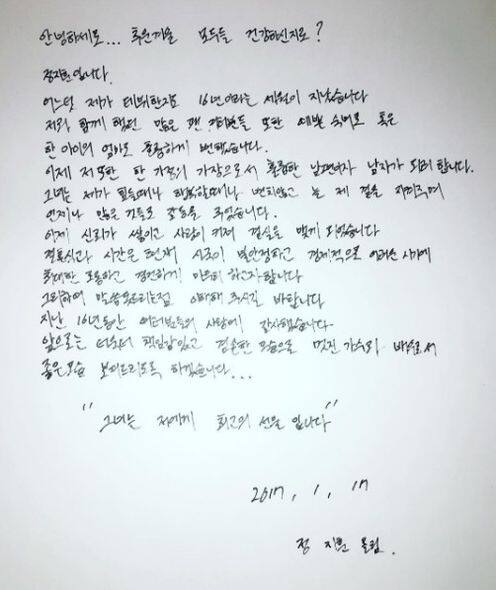 안녕하세요... 추운겨울 모두들 건강하신지요?
정지훈입니다.
어느덧 제가 데뷔한지도 16년이라는 세월이 지났습니다
저와 함께 했던 많은 팬 여러분들 또한 예쁜 숙녀로 혹은
한 아이의 엄마로 훌륭하게 변했습니다.
이제 저 또한 한 가정의 가장으로서 훌륭한 남편이자 남자가 되려 합니다.
그녀는 제가 힘들때나 행복할때나 변치않고 늘 제 곁을 지켜주며
언제나 많은 것들로 감동을 주었습니다.
이제 신뢰가 쌓이고 사랑이 커져 결실을 맺게 되었습니다
결혼식과 시간은 현재 시국이 불안정하고 경제적으로 어려운 시기에
최대한 조용하고 경건하게 마련하고자합니다
그리하여 말씀못드리는점 이해해 주시길 바랍니다
지난 16년동안 여러분들의 사랑에 감사했습니다
앞으로는 더더더 책임감있고 겸손한 모습으로 멋진 가수와 배우로서
좋은모습 보여드리도록 하겠습니다...
"그녀는 저에게 최고의 선물 입니다"
2017, 1, 17
정 지훈 올림.